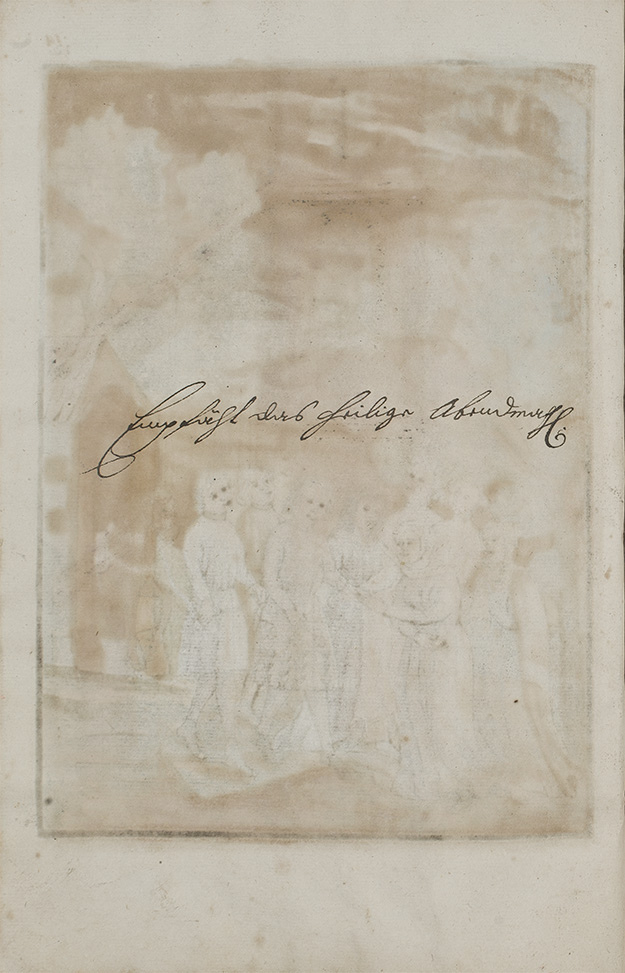 Empfäht das heilige Abendmahl.